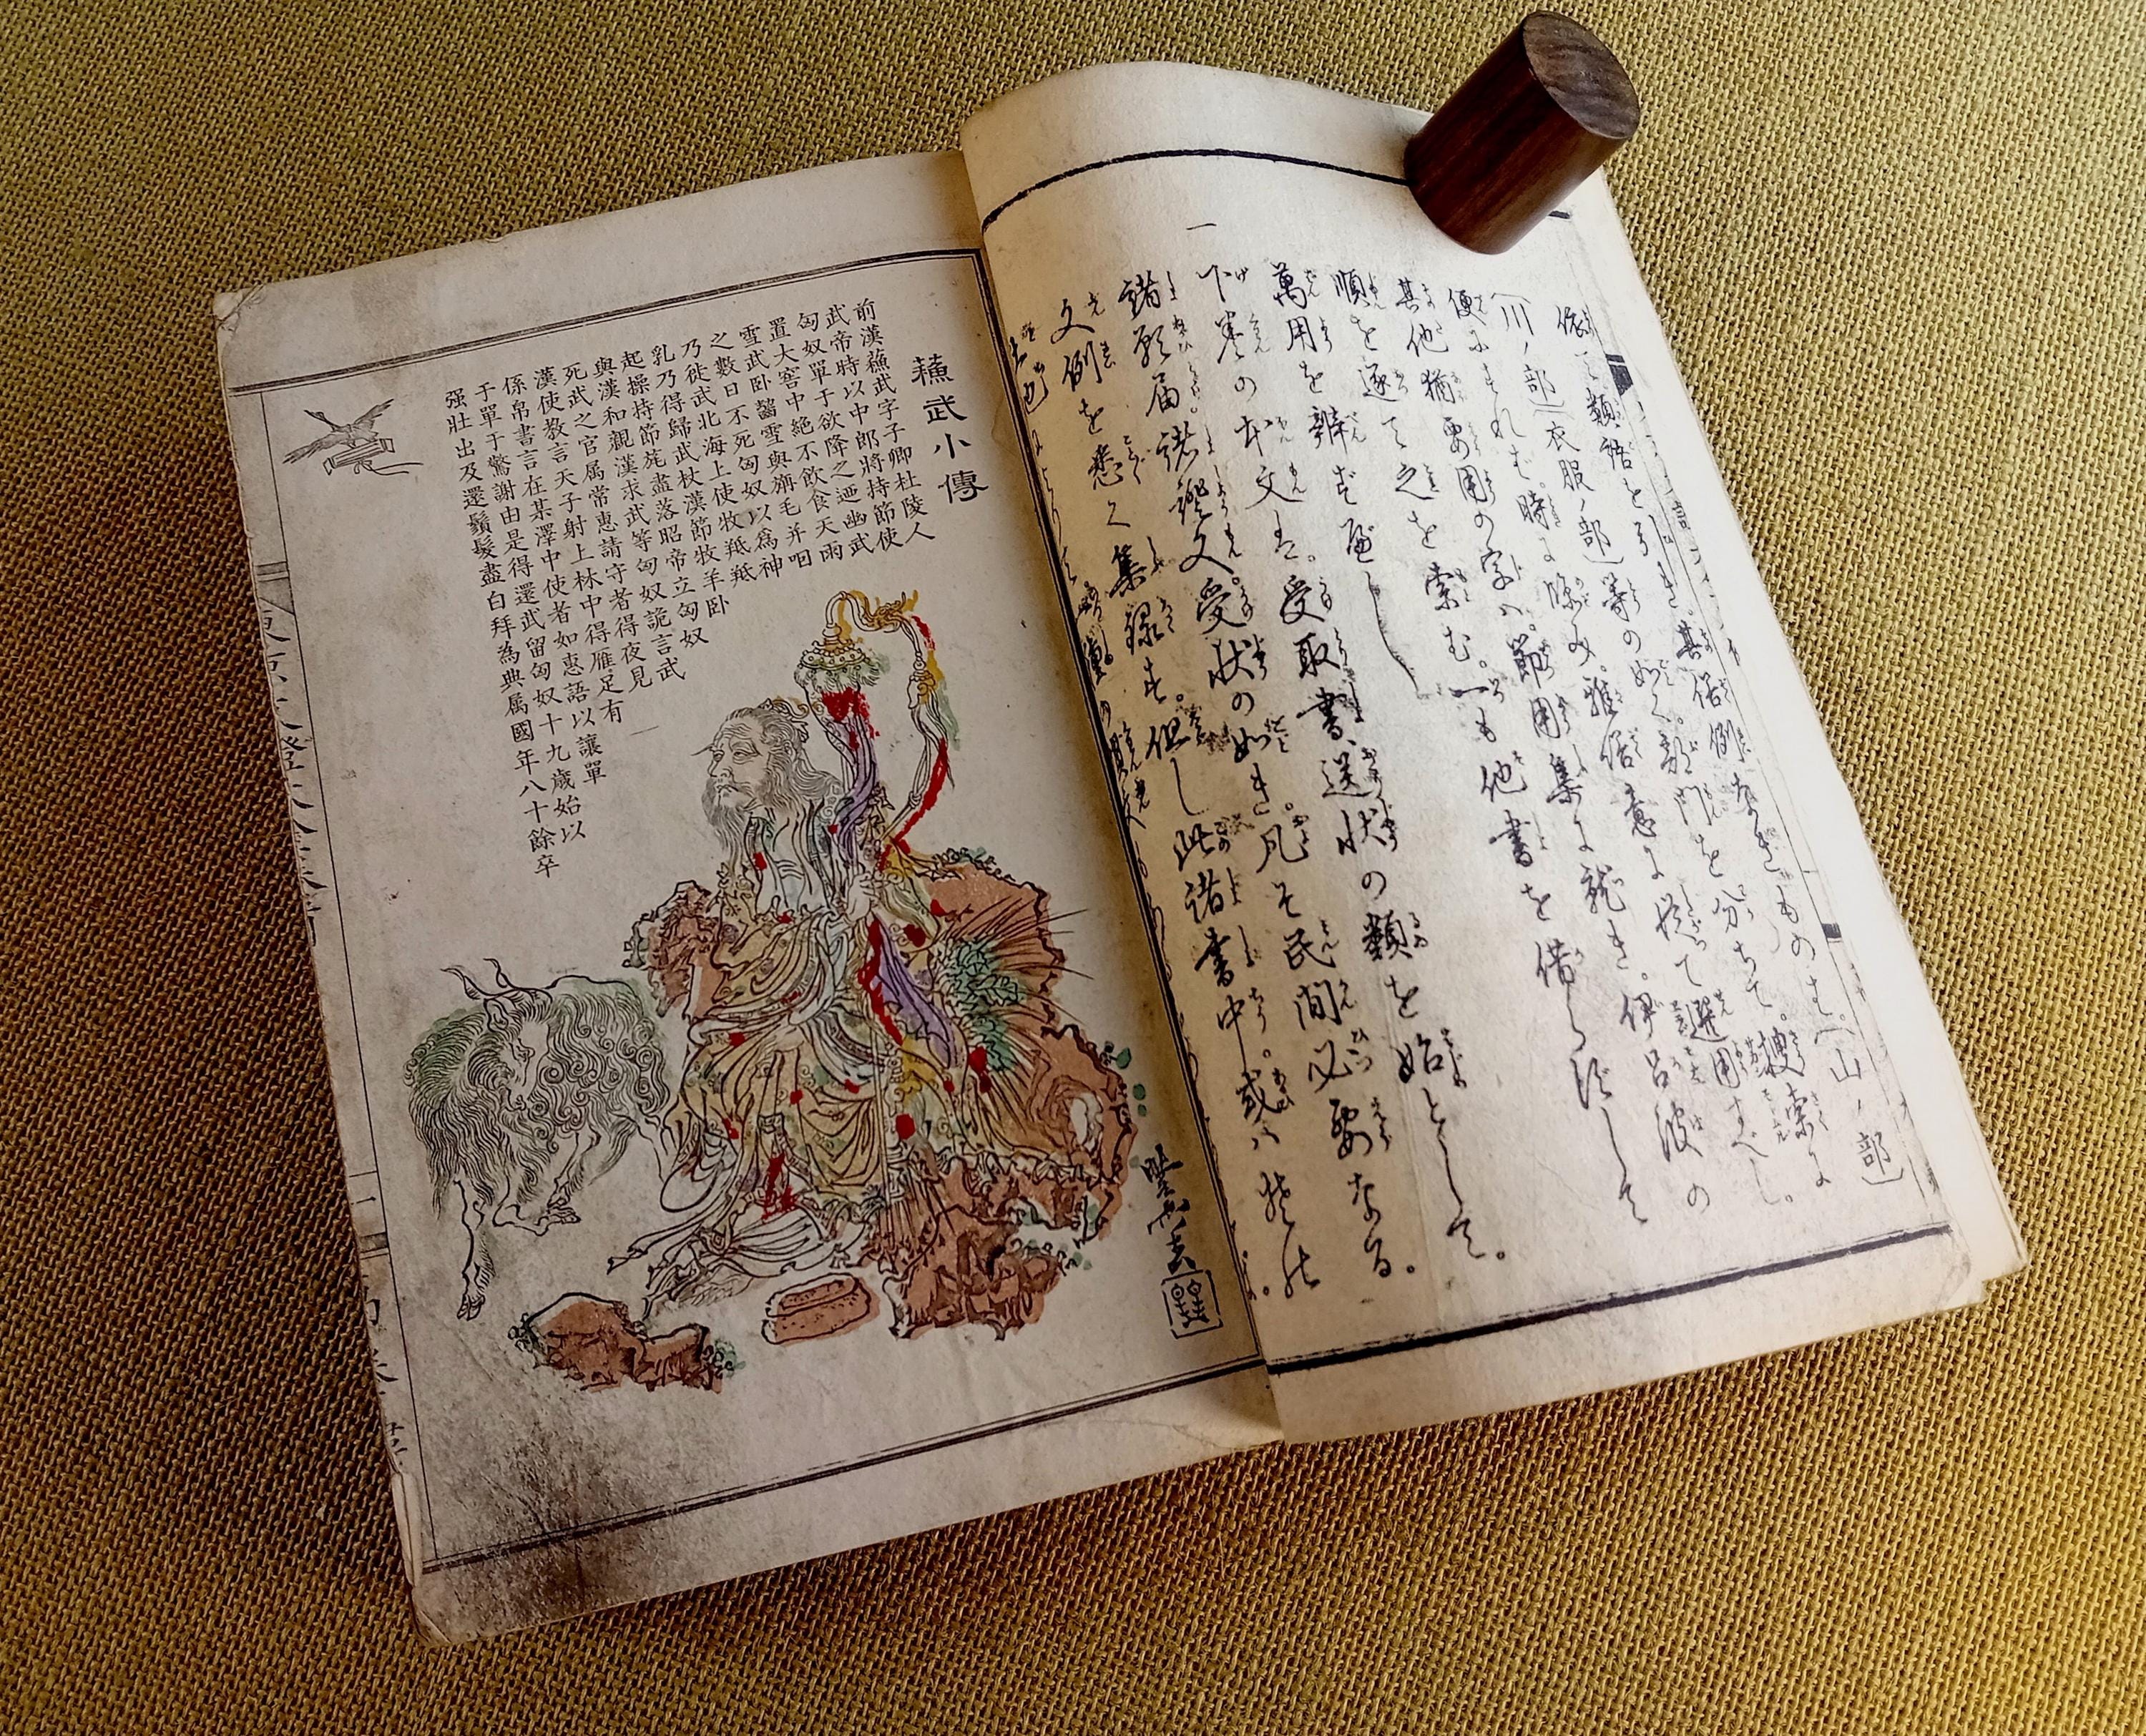 依て類語と引き。其俗例なきものは。(山ノ部)
(川ノ部)(衣服ノ部)等の如く。部門を分ちて。捜索に
便にすれば。時に臨み。雅俗意に従つて選用すべし。
其他猶要用の字ハ。節用集に就き。伊呂波の
順を逐て之を索む。一も他書を借らずして
萬用を辨ずべし
一
下巻の本文は。受取書、送状の類を始として。
諸願届諸證文。受状の如き。凡そ民間必要なる。
文例を悉く集録す。但し此諸書中。或ハ
蘓武小傳
前漢蘓武字子卿杜陵人
武帝時以中郎將持節使
匈奴單于欲降之迺幽武
置大窖中絶不飲食天雨
雪武卧齧雪與旃毛并咽
之數日不死匈奴以為神
乃徙武北海上使牧羝羝
乳乃得歸武杖漢節牧羊卧
起操持節旄盡落昭帝立匈奴
與漢和親漢求武等匈奴詭言武
死武之官属常惠請守者得夜見
漢使教言天子射上林中得雁足有
係帛書言在某澤中使者如惠語以讓單
于單于驚謝由是得還武留匈奴十九歳始以
强壯出及還鬚髮盡白拜為典属國年八十餘卒